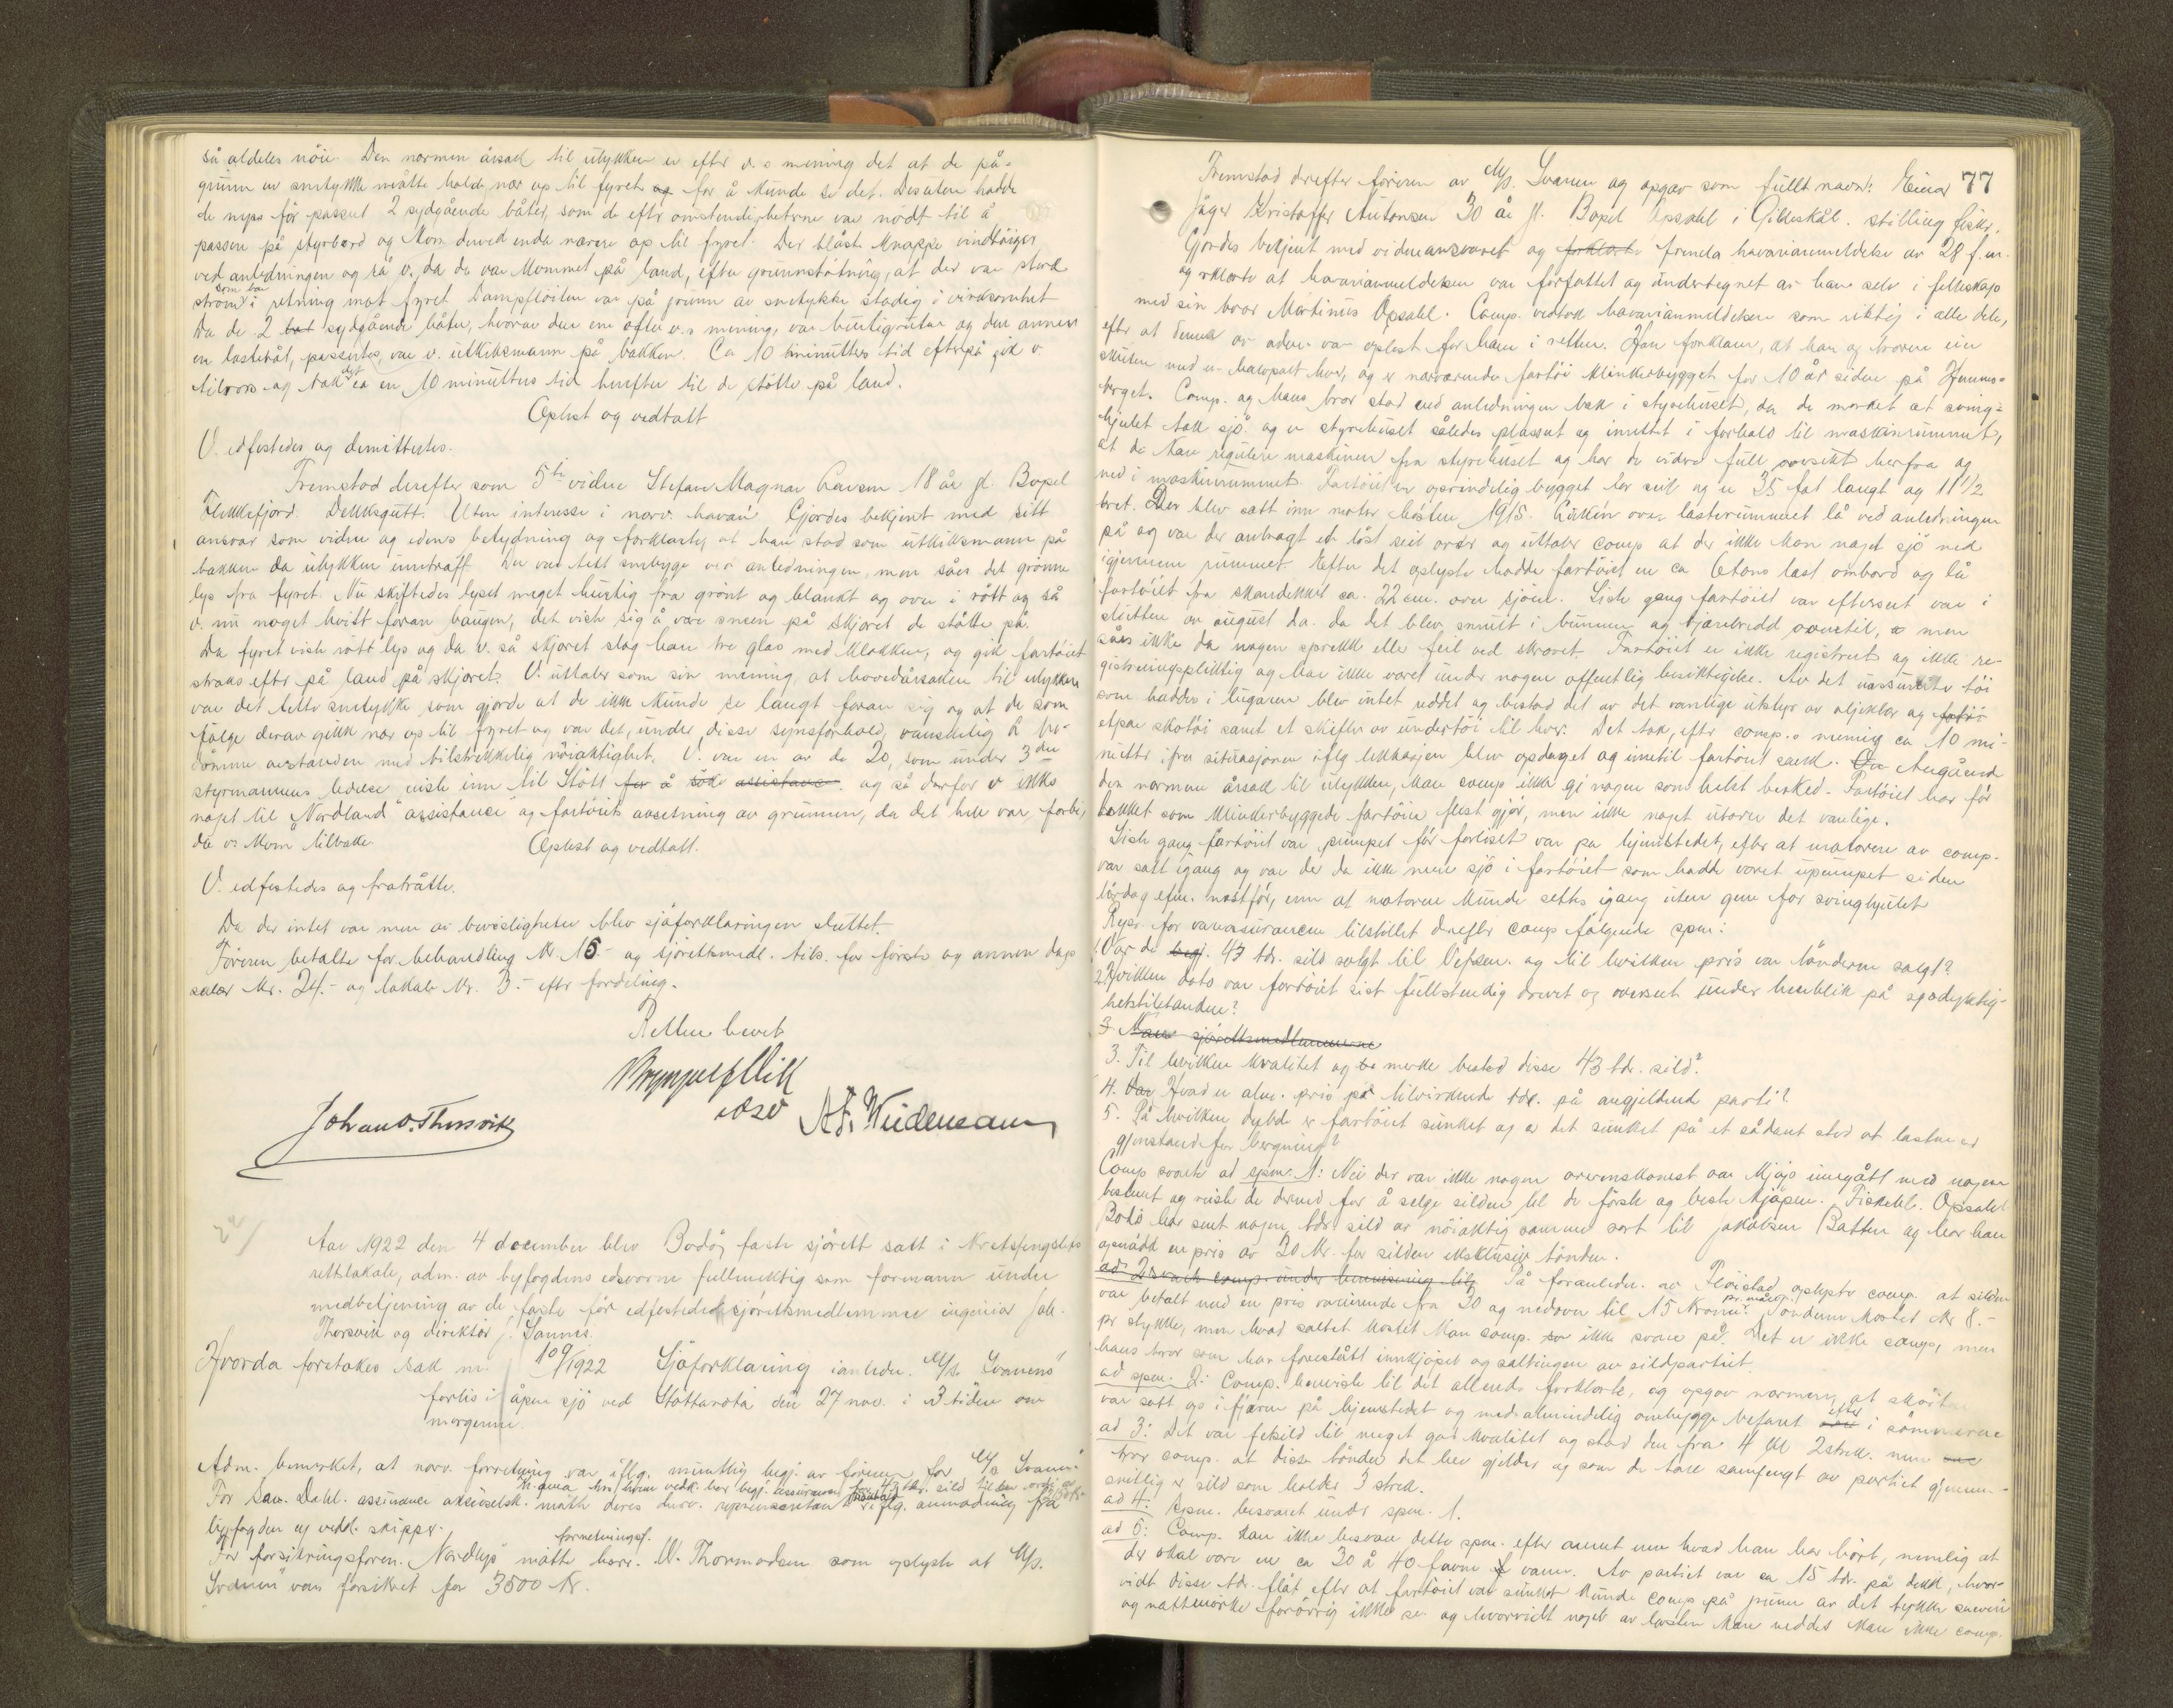 så aldeles nöie. Den nærmen årsak til ulykken er efter v.s mening det at de på-
grunn av snetykke måtte holde nær op til fyret for å kunde se det. Desuten hadde
de nyss för passert 2 sydgående båter, som de eftr omstendighetrene var nödt til å
passere på styrbord og kom derved enda nærere op til fyret. Der blåste knappe vindböiger
ved anledningen og så v. da de var kommet på land, efter grunnstötning, at der var sterk
ström som bar i retning mot fyret. Dampflöiten var på grunn av snetykke stadig i virksomhet
Da de 2 sydgående båter, hvorav den ene efter v.s mening, var hurtigruten og den annen
en lastebåt, passertes, var v. utkiksmann på bakken. Ca 10 minutters tid efterpå gik v.
tilrors og tok det ca en 10 minutters tid herefter til de stötte på land.
Oplest og vedtatt
V. edfestedes og demittertes.
Fremstod derefter som 5te vidne Stefan Magnar Larsen 18 år gl. Bopel
Flekkefjord. Dekksgutt. Uten interesse i nærv. havari. Gjordes bekjent med sitt
ansvar som vidne og edens betydning og forklarte, at han stod som utkiksmann på
bakken da ulykken inntraff. Der var tett snebyge ved anledningen, men såes det grönne
lys fra fyret. Nu skiftedes lyset meget hurtig fra grönt og blankt og over i rött og så
v. nu noget hvitt foran baugen, det viste sig å være sneen på skjæret de stötte på.
Da fyret viste rött lys og da v. så skjæret slog han tre glas med klokken, og gik fartöiet
straks efter på land på skjæret. V. uttaler som sin mening at hovedårsaken til ulykken
var det tette snetykke som gjorde at de ikke kunde se langt foran sig og at de som
fölge derav gikk nær op til fyret og var det, under disse synsforhold, vanskelig å be-
dömme avstanden med tilstrekkelig nöiaktighet. V. var en av de 20, som under 3die
styrmannens ledelse reiste inn til Stött for å söke assistanse og så derfor v ikke
noget til "Nordland" assistanse og fartöiets avsetning av grunnen, da det hele var forbi,
da v. kom tilbake.
Oplest og vedtatt.
V. edfestedes og fratrådte.
Da der intet var mer av bevisligheter blev sjöforklaringen sluttet.
Föreren betalte for behandling kr. 15.- og sjörettsmedl. tils. for förste og annen dags
salær kr. 24.- og lokale kr. 3.- efter fordeling.
Retten hevet
Johan O. Thorsvik
edsv
A.F. Weidemann
Aar 1922 den 4 december blev Bodö faste sjörett satt i kretsfengslets
rettslokale, adm. av byfogdens edsvorne fullmektig som formann under
medbetjening av de faste för edfestede sjörettsmedlemmer ingeniör Joh.
Thorsvik og direktör J. Sannes.
Hvorda foretokes sak nr. 109/1922 Sjöforklaring i anledn. M/s. "Svanens"
forlis i åpen sjö ved Støttværota den 27 nov. i 3 tiden om
morgenen.
Adm. bemerket, at nærv. forretning var iflg. muntlig begj. av föreren for M/s "Svanen"
For Sam. Dahl. assurance aktieselsk. mötte deres herv. representant iflg. anmodning fra
byfogden og vedk. skipper.
For forsikringsforen. "Nordlys" mötte forretningsf. herr. N. Thormodsen som oplyste at M/s.
"Svanen" var forsikret for 3500 kr.
77
Fremstod derefter föreren av M/s. Svanen og opgav som fullt navn: Einar
Jäger Kristoffer Antonsen 30 år gl. Bopel Opsahl i Gilleskål. stilling fisker.
Gjordes bekjent med vidneansvaret og fremla havarianmeldelse av 28 f.m.
og erklærte at havarianmeldelsen var forfattet og undertegnet av ham selv i felleskap
med sin bror Martinus Opsahl. Comp. vedtok havarianmeldelsen som riktig i alle dele,
efter at denne av adm. var oplest for ham i retten. Han forklarer, at han og broren eier
skuten med en halvpart hver, og er nærværende fartöi klinkerbygget for 10 år siden på Hemnes-
berget. Comp. og hans bror stod ved anledningen bak i styrehuset, da de merket at sving-
hjulet tok sjö. og er styrehuset således plassert og innettet i forhold til maskinrummet,
at de kan regulere maskinen fra styrehuset og har de videre full oversikt herfra og
ned i maskinrummet. Fartöiet er oprindelig bygget for seil og er 35 fot langt og 11 1/2
bret. Der blev satt inn motor hösten 1915. Luken over lasterummet lå ved anledningen
på og var der anbragt et löst seil over og uttaler comp at der ikke kom noget sjö ned
igjennem rummet. Efter det oplyste hadde fartöiet en ca 6 tons last ombord og lå
fartöiet fra skandekket ca. 22 cm. over sjöen. Siste gang fartöiet var efterseet var i
slutten av august da. da det blev smurt i bunnen og tjærebredd oventil, men
såes ikke da nogen sprekk eller feil ved skroget. Fartöiet er ikke registrert og ikke re-
gistreringspliktig og har ikke været under nogen offentlig besiktigelse. Av det uassurerte töi
som haddes i lugaren blev intet reddet og bestod det av det vanlige utstyr av oljeklær og
et par skotöi samt et skifter av undertöi til hver. Det tok, efter comp.s mening ca 10 mi-
nutter i fra situasjonen iflg lekkasjen blev opdaget og inntil fartöiet sank. Angående
den nærmere årsak til ulykken, kan comp ikke gi nogen som helst besked. Fartöiet har för
lekket som klinkerbyggede fartöier flest gjör, men ikke noget utover det vanlige.
Siste gang fartöiet var pumpet för forliset var på hjemstedet, efter at motoren av comp.
var satt igang og var der da ikke mere sjö i fartöiet som hadde været upumpet siden
lördag efm. nestför, enn at motoren kunde settes igang uten gene for svinghjulet
Repr. for vareassurancen tilstillet derefter comp fölgende spm:
1. Var de 43 tdr. sild solgt til Vefsn. og til hvilken pris var tönderne solgt?
2. Hvilken dato var fartöiet sist fullstendig drevet og overset under henblik på sjödyktig-
hetstilstanden?
3 sjörettsmedlemmerne
3. Til hvilken kvalitet og merke bestod disse 43 tdr. sild?
4. Hvad er alm. pris på tilvirkende tdr. på angjeldend parti?
5. På hvilken dybde er fartöiet sunket og er det sunket på et sådant sted at lasten er
gjenstand for bergning?
Comp svarte ad spm. 1: Nei der var ikke nogen overenskomst om kjöp inngått med nogen
bestemt og reiste de dermed for å selge silden til de förste og beste kjöpere. Fiskehl. Opsahl
Bodö har sent nogen tdr. sild av nöiaktig samme sort til Jakobsen Batten og har han
opnådd en pris av 30 kr. for silden eksklusiv tönden.
På foranledn. av Flöistad oplyste comp. at silden
var betalt med en pris varierende fra 20 og nedover til 15 kroner pr. mål. Tönderne kostet kr 8.-
pr stykke, men hvad saltet kostet kan comp. ikke svare på. Det er ikke comp, men
hans bror som har forestått innkjöpet og saltingen av sildpartiet
ad spm. 2: Comp. henviste til det allerede forklarte, og opgav nærmere, at sköiten
var satt op i fjæren på hjemstedet og med almindelig ombygge befaret efter i sömmene
ad 3: Det var fetsild til meget god kvalitet og stod den fra 4 til 2 strek. men
tror comp. at disse tönder det her gjelder og som de tok samfengt av partiet gjennem-
snitlig er sild som holder 3 strek.
ad 4: Spm. besvaret under spm. 1.
ad 5: Comp. kan ikke besvare dette spm. efter annet enn hvad han har hört, nemlig at
der skal være en ca 30 à 40 favne vann. Av partiet var ca 15 tdr. på dekk, hvor-
vidt disse tdr. flöt efter at fartöiet var sunket kunde comp på grunn av det tykke sneveir
og nattemörke forövrig ikke se og hvorvidt noget av lasten kan reddes kan ikke comp.